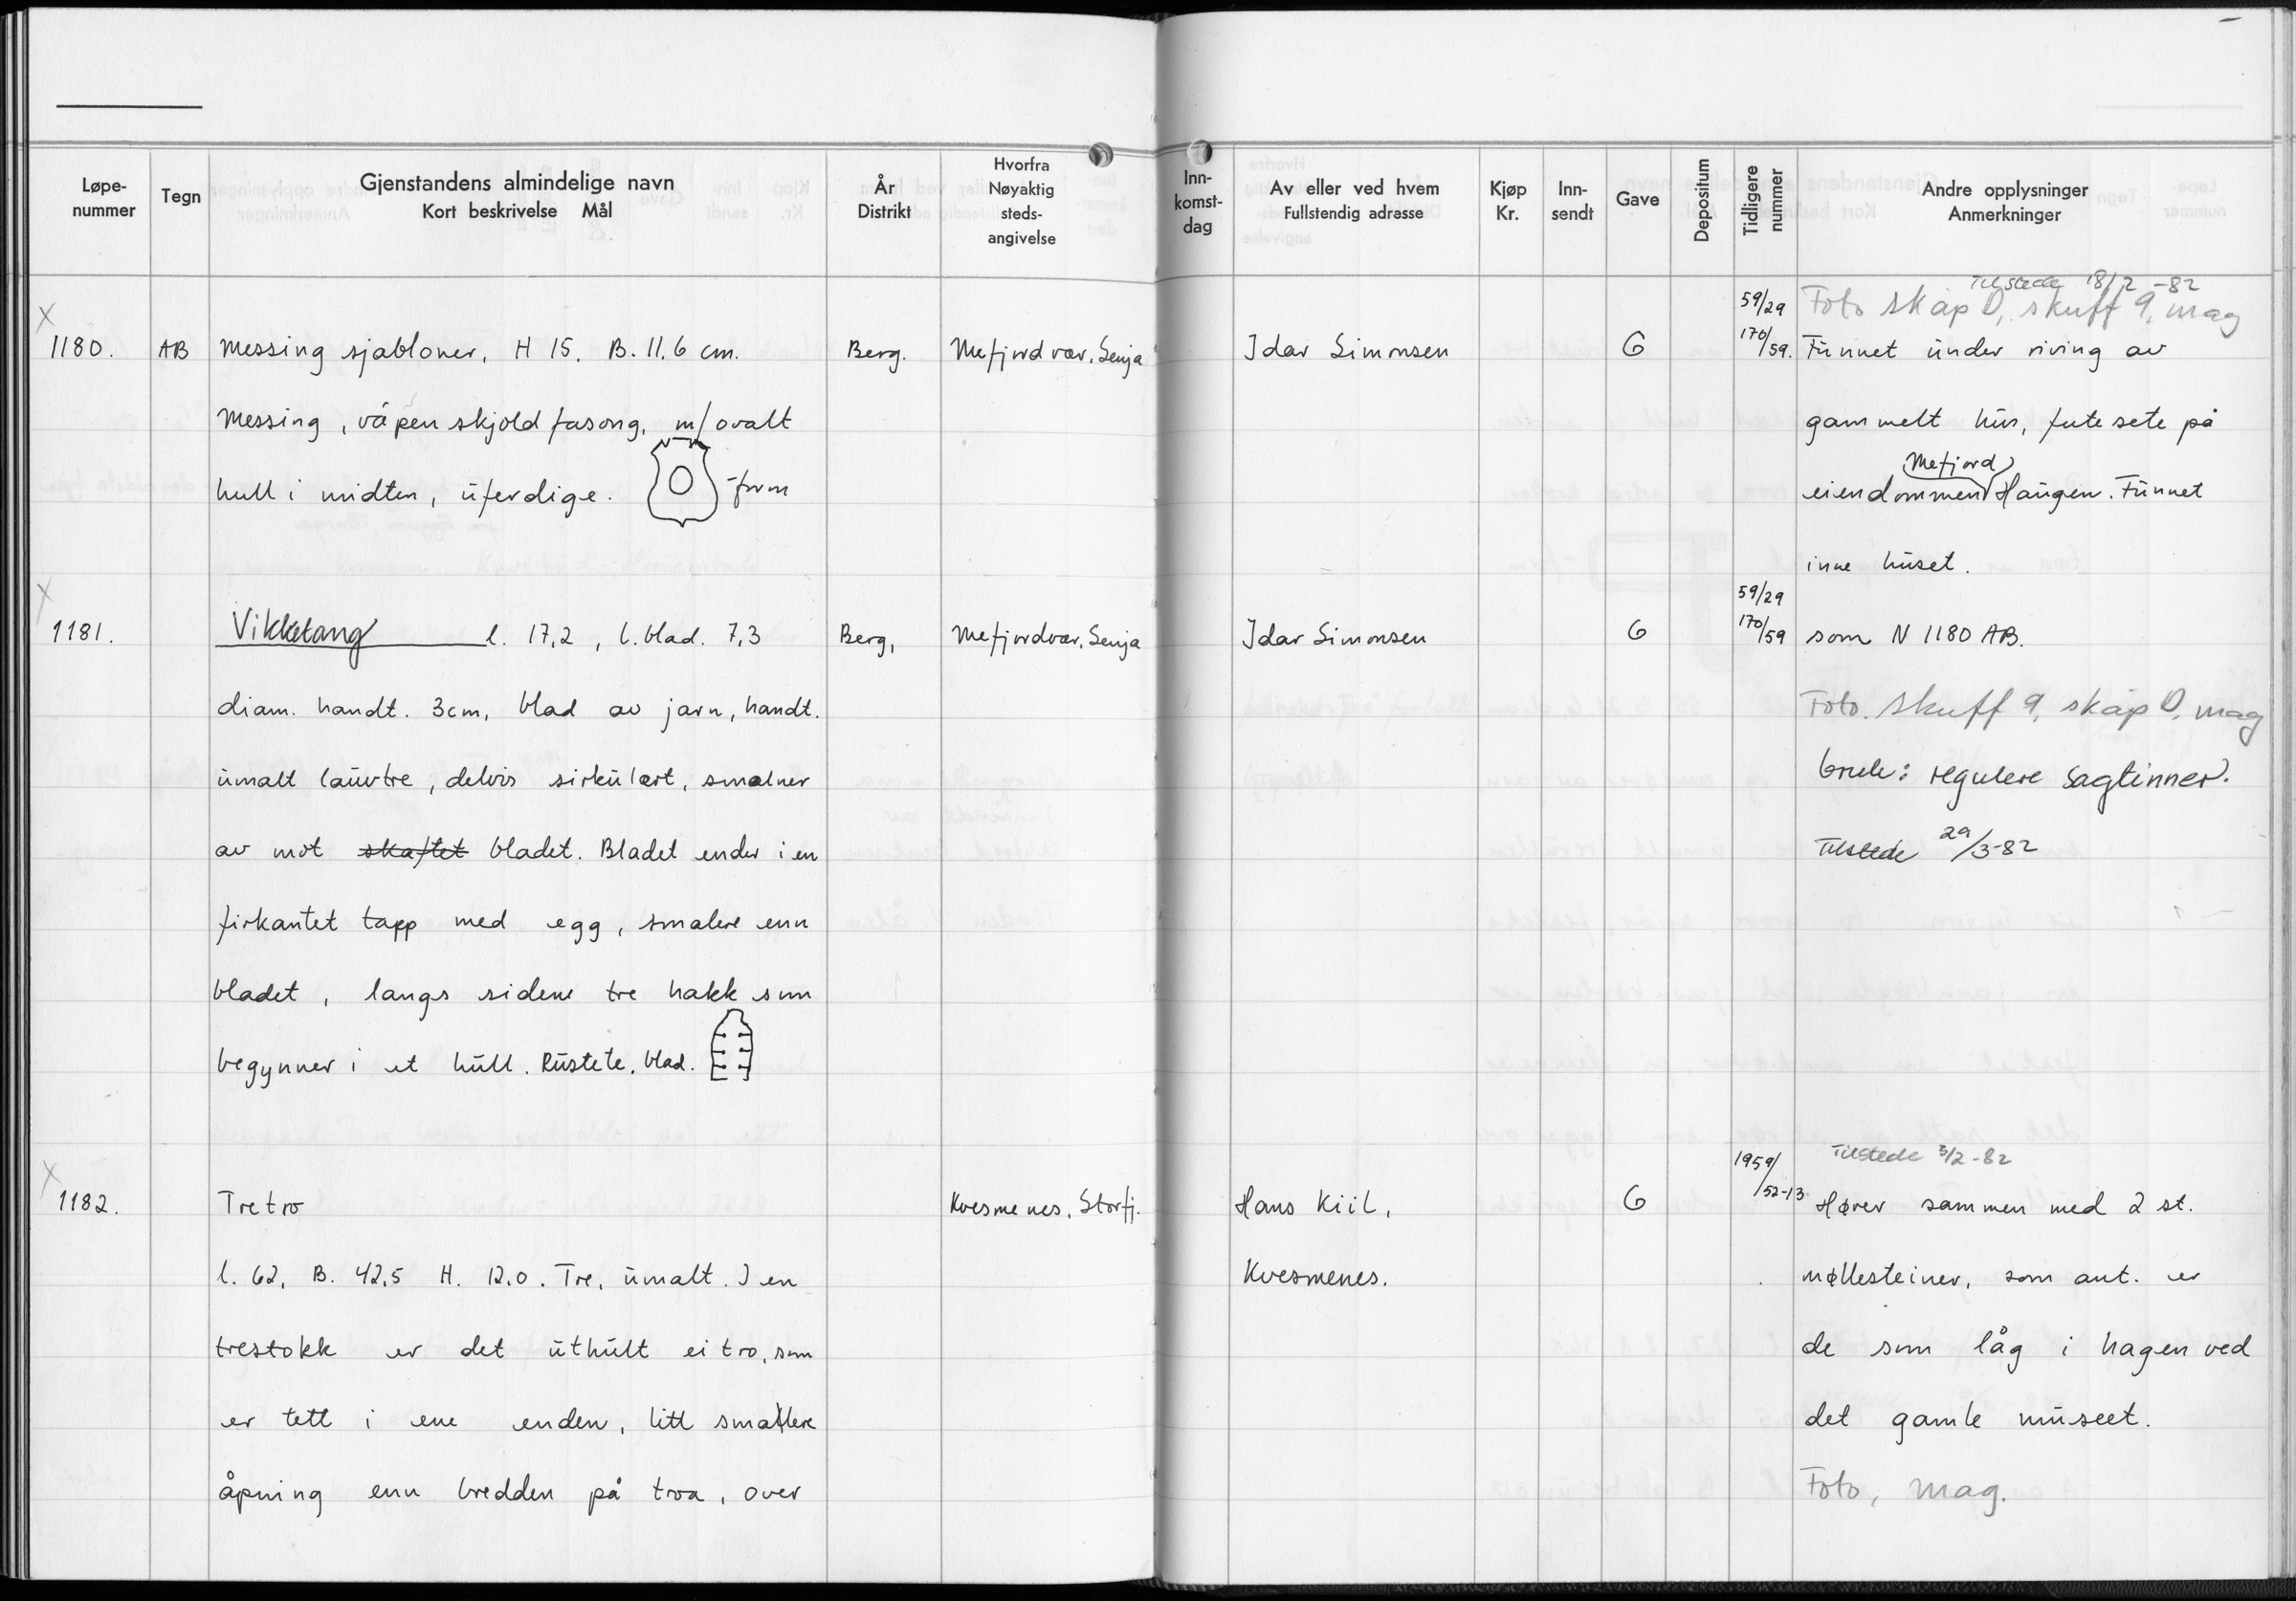 Løpe-
nummer
Tegn
Gjenstandens almindelige navn
Kort beskrivelse Mål
År
Distrikt
Hvorfra
Nøyaktig
steds-
angivelse
Inn-
komst-
dag
Av eller ved hvem
Fullstendig adresse
Kjøp
Kr.
Inn-
sendt
Gave
Depositum
Tidligere
nummer
Andre opplysninger
Anmerkninger
X
1180.
AB
Messing sjabloner, H 15, B. 11.6 cm.
Messing, våpenskjold fasong, m/ovalt
hull i midten, uferdige. -form
Berg.
Mefjordvær, Senja
Idar Simonsen
G
59/29
170/59.
Tilstede 18/2 -82
Foto skap D, skuff 9, mag
Funnet under riving av
gammelt hus, futesete på
Mefjord
eiendommen Haugen. Funnet
inne huset.
X
1181.
Vikketang l. 17,2, l. blad. 7,3
diam. handt. 3cm, blad av jarn, handt.
umalt lauvtre, delvis sirkulært, smalner
av mot skaftet bladet. Bladet ender i en
firkantet tapp med egg, smalere enn
bladet, langs sidene tre hakk som
begynner i et hull. Rustete. blad.
Berg,
Mefjordvær, Senja
Idar Simonsen
G
59/29
170/59
som N 1180 AB.
Foto. skuff 9, skap D, mag
bruk: regulere sagtinner.
Tilstede 29/3-82
X
1182.
Tretro
l. 62, B. 42,5 H. 12,0. Tre, umalt. I en
trestokk er det uthult ei tro, som
er tett i ene enden, litt smalere
åpning enn bredden på troa, over
Kvesmenes, Storfj.
Hans Kiil,
Kvesmenes.
G
1959/
/52-13
Tilstede 3/2-82
Hører sammen med 2 st.
møllesteiner, som ant. er
de som låg i hagen ved
det gamle museet.
Foto, mag.